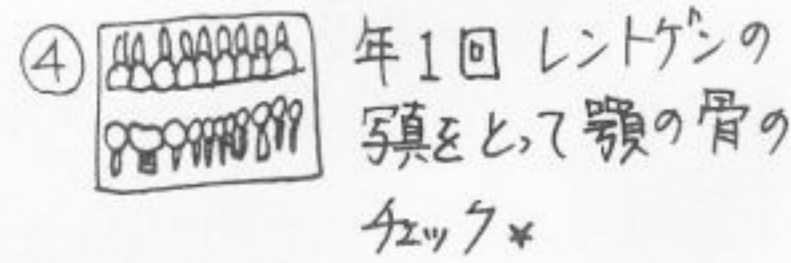 ④ 年1回 レントゲンの
写真をとって顎の骨の
チェック★